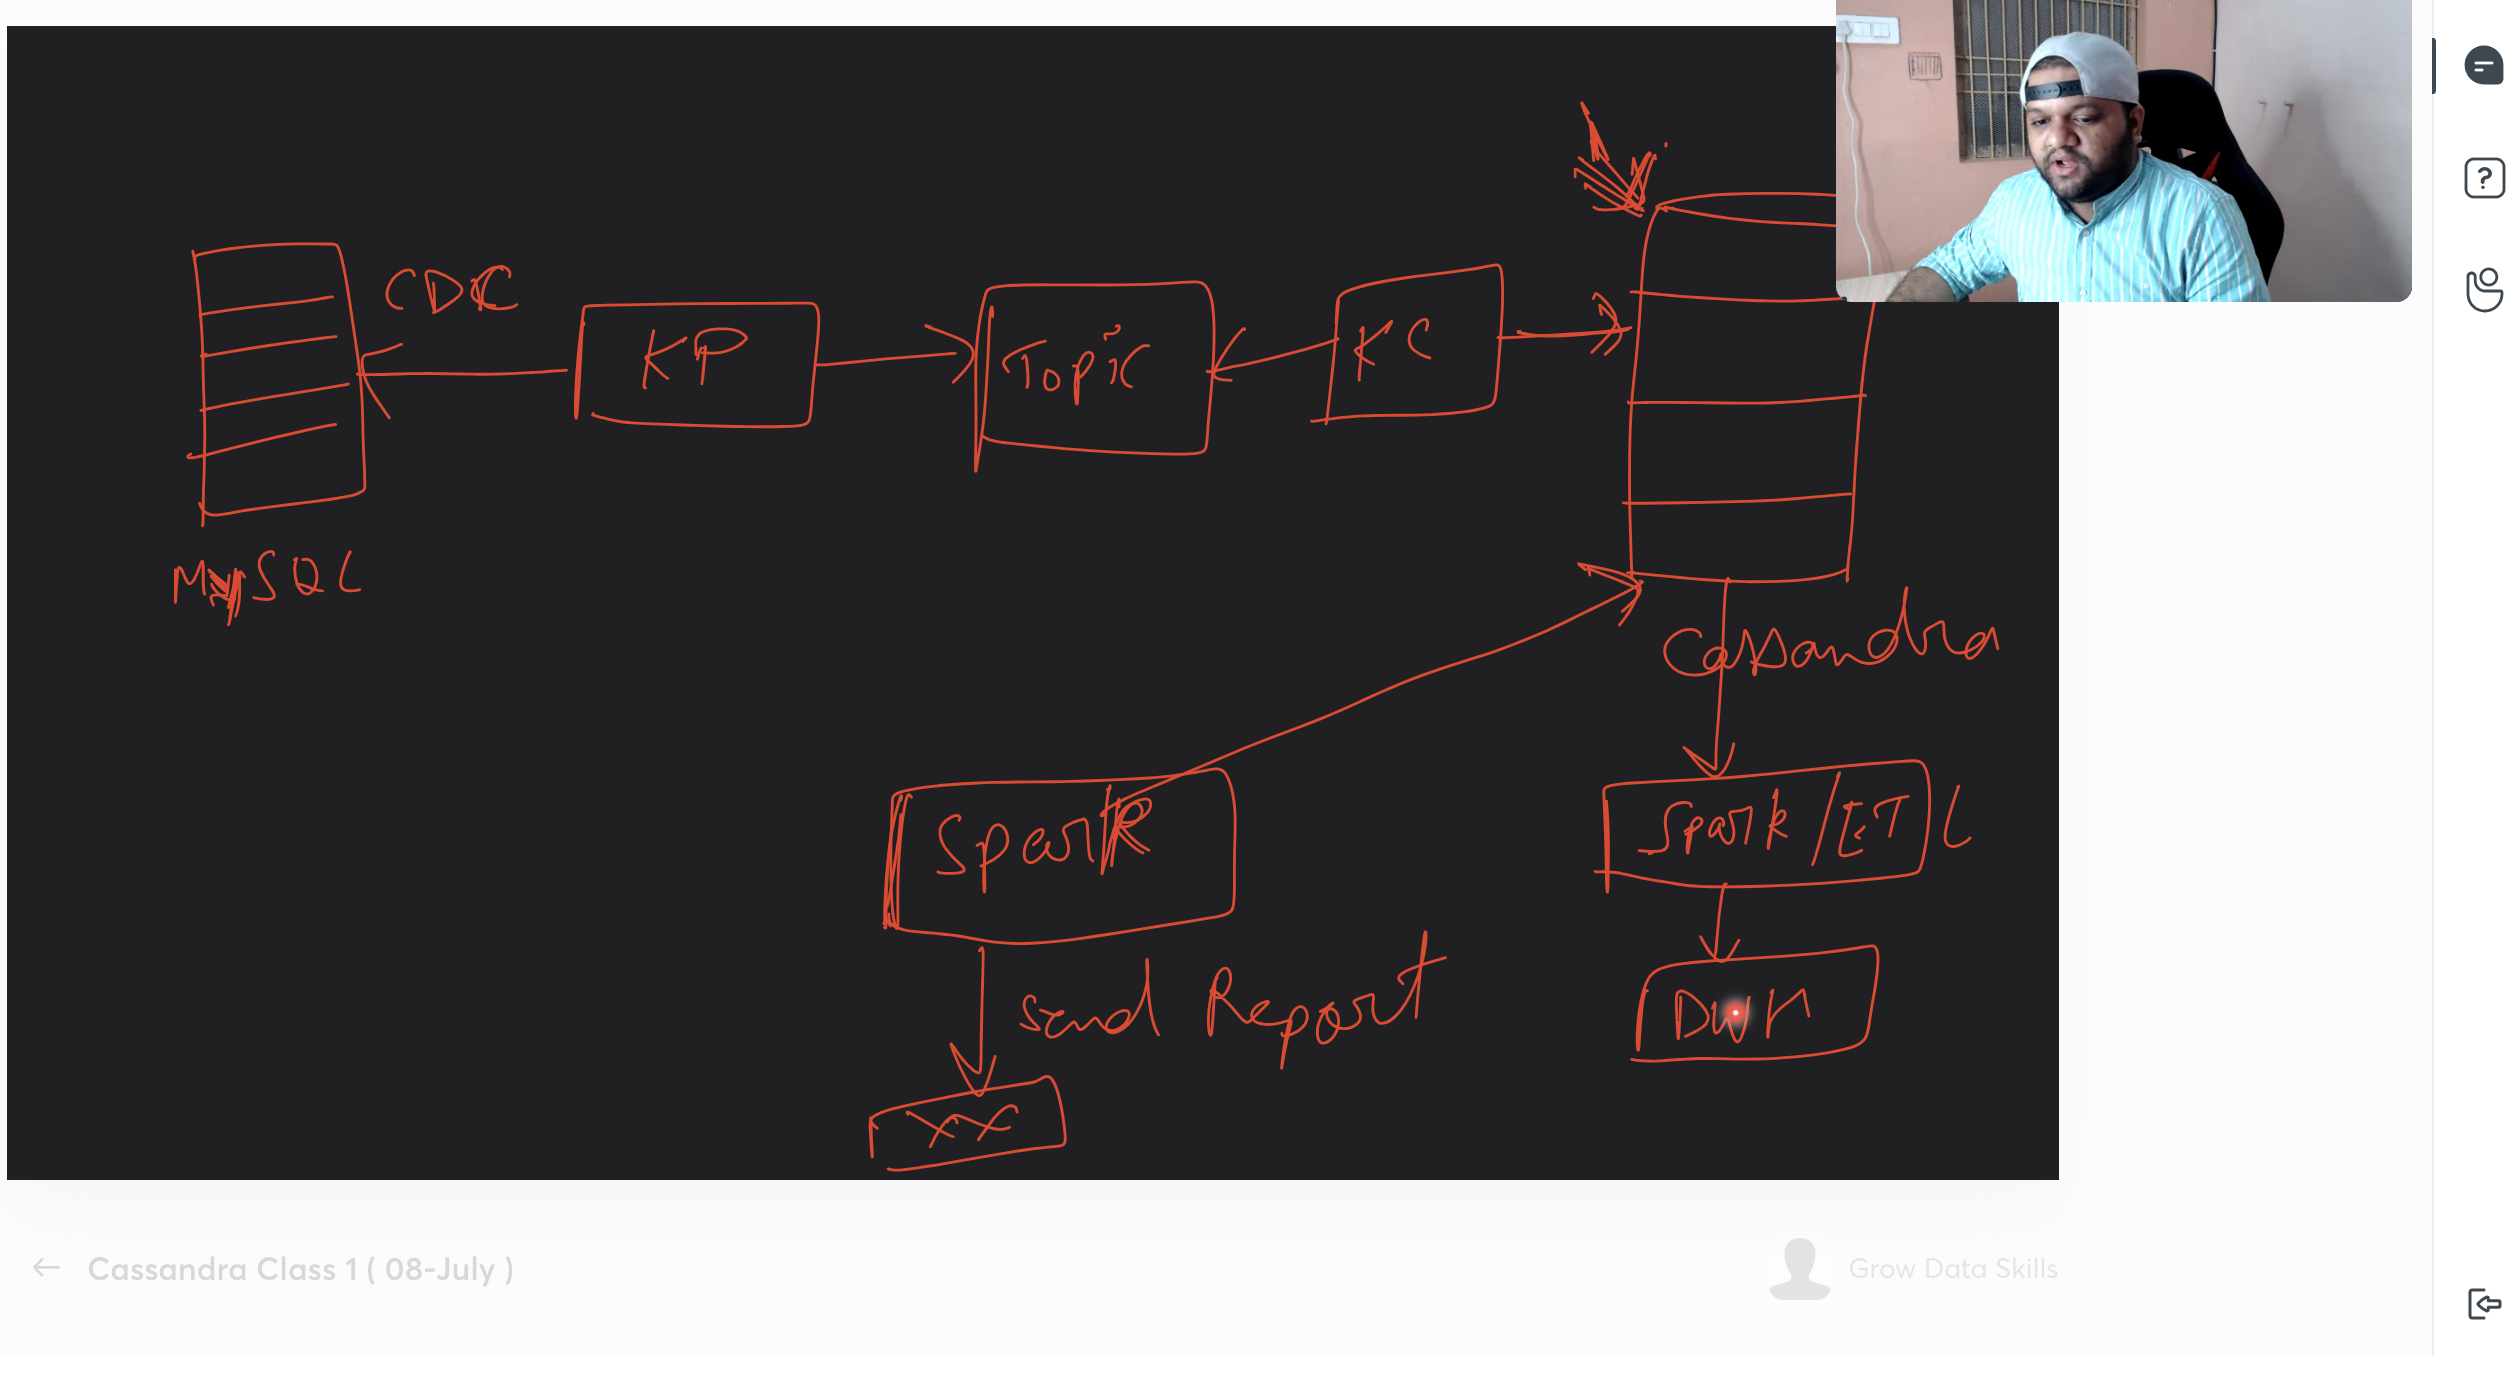 CDC
KP
Topic
KC
MySQL
Cassandra
Spark
Spark/ETL
Send Report
DWH
XX
Cassandra Class 1 ( 08-July )
Grow Data Skills